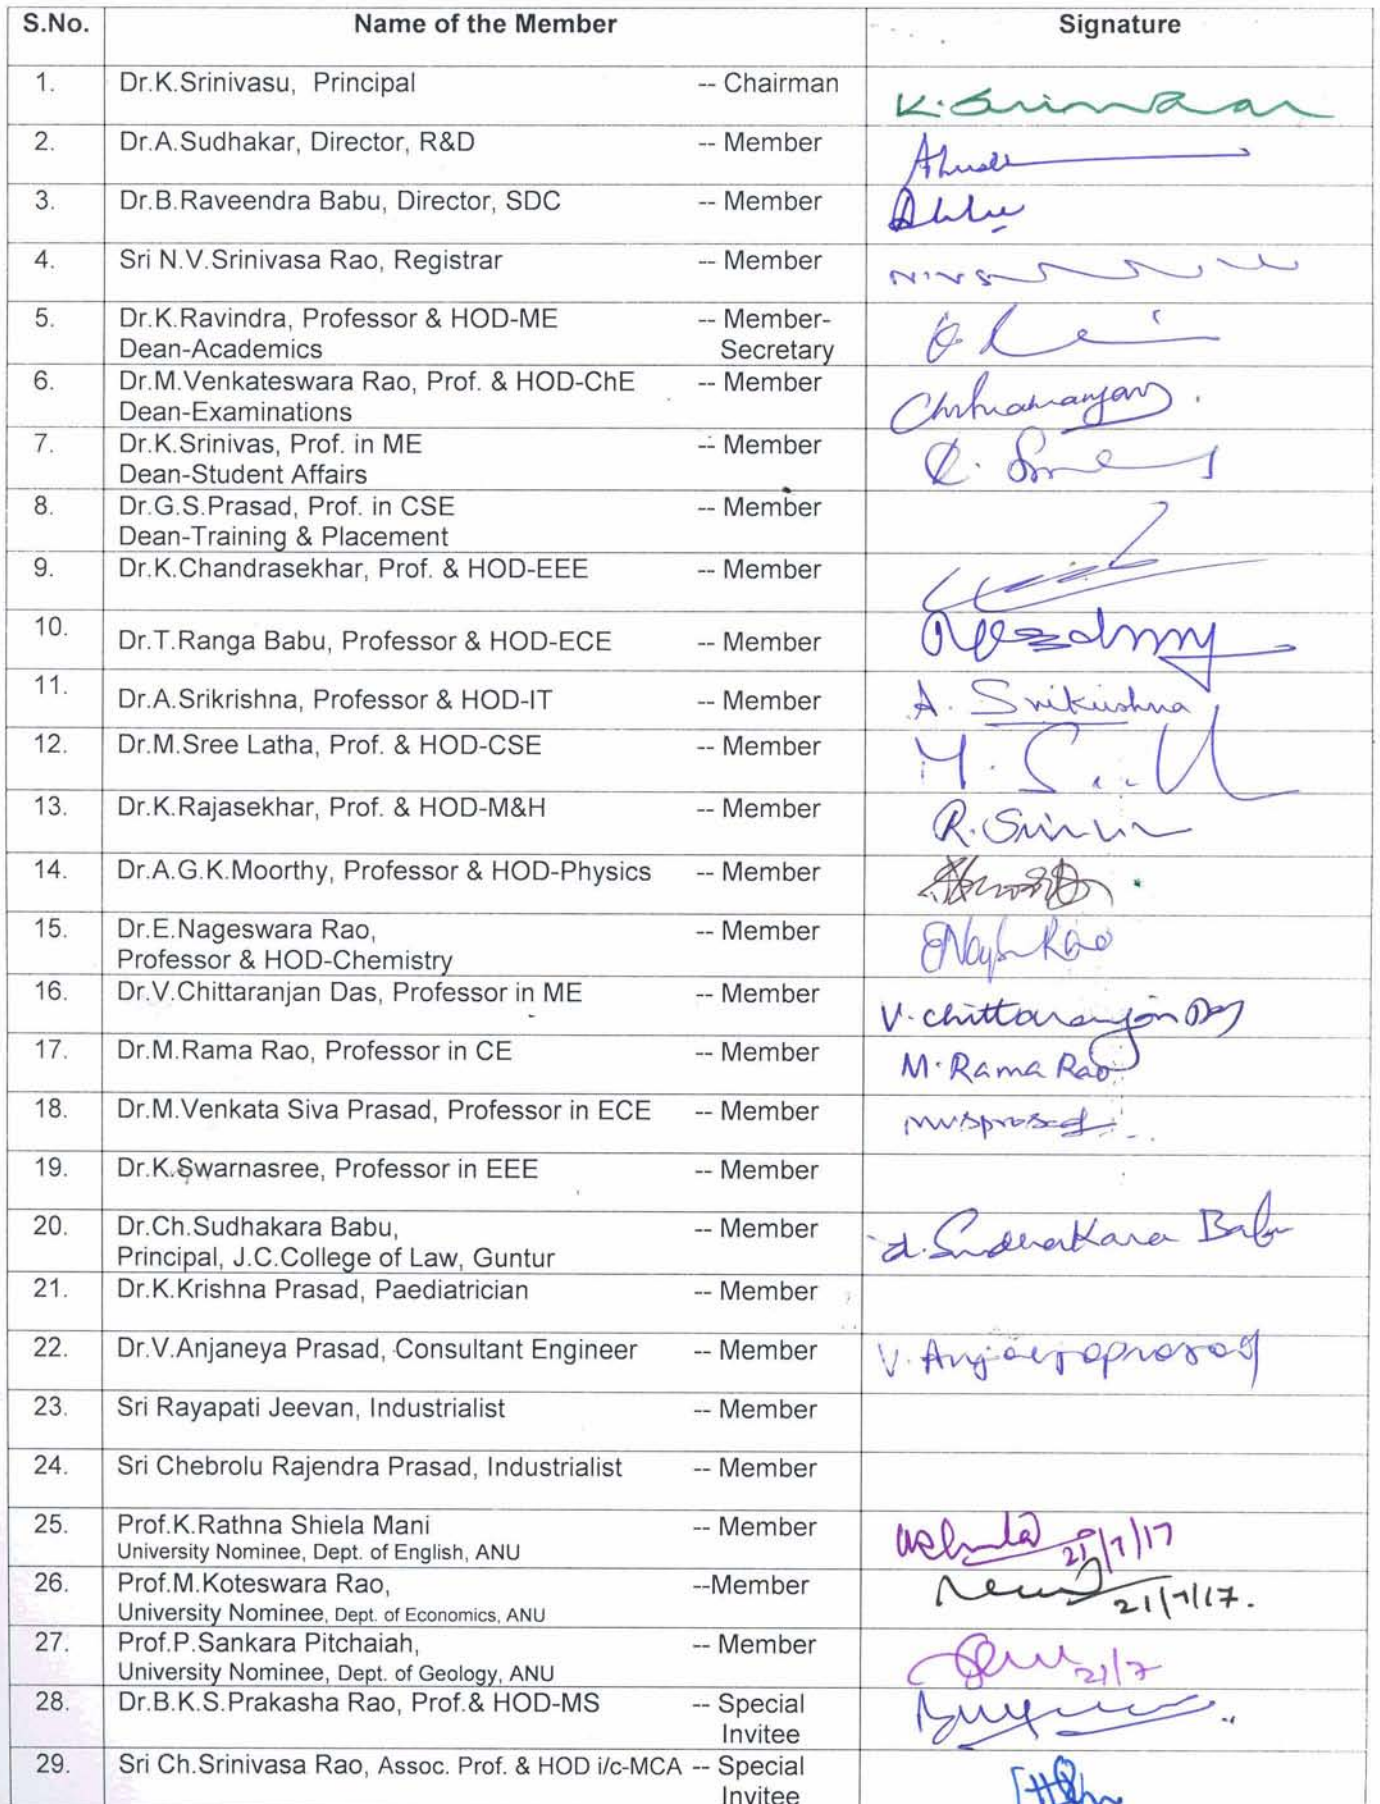 S.No. Name of the Member Signature
1. Dr.K.Srinivasu, Principal -- Chairman K.Srinivasu
2. Dr.A.Sudhakar, Director, R&D -- Member
3. Dr.B.Raveendra Babu, Director, SDC -- Member
4. Sri N.V.Srinivasa Rao, Registrar -- Member
5. Dr.K.Ravindra, Professor & HOD-ME -- Member-
Dean-Academics Secretary
6. Dr.M.Venkateswara Rao, Prof. & HOD-ChE -- Member
Dean-Examinations
7. Dr.K.Srinivas, Prof. in ME -- Member
Dean-Student Affairs
8. Dr.G.S.Prasad, Prof. in CSE -- Member
Dean-Training & Placement
9. Dr.K.Chandrasekhar, Prof. & HOD-EEE -- Member
10. Dr.T.Ranga Babu, Professor & HOD-ECE -- Member
11. Dr.A.Srikrishna, Professor & HOD-IT -- Member A. Srikrishna
12. Dr.M.Sree Latha, Prof. & HOD-CSE -- Member
13. Dr.K.Rajasekhar, Prof. & HOD-M&H -- Member
14. Dr.A.G.K.Moorthy, Professor & HOD-Physics -- Member
15. Dr.E.Nageswara Rao, -- Member
Professor & HOD-Chemistry
16. Dr.V.Chittaranjan Das, Professor in ME -- Member V. Chittaranjan Das
17. Dr.M.Rama Rao, Professor in CE -- Member M. Rama Rao
18. Dr.M.Venkata Siva Prasad, Professor in ECE -- Member mvsprasad
19. Dr.K.Swarnasree, Professor in EEE -- Member
20. Dr.Ch.Sudhakara Babu, -- Member Sudhakara Babu
Principal, J.C.College of Law, Guntur
21. Dr.K.Krishna Prasad, Paediatrician -- Member
22. Dr.V.Anjaneya Prasad, Consultant Engineer -- Member V. Anjaneyaprasad
23. Sri Rayapati Jeevan, Industrialist -- Member
24. Sri Chebrolu Rajendra Prasad, Industrialist -- Member
25. Prof.K.Rathna Shiela Mani -- Member 21/7/17
University Nominee, Dept. of English, ANU
26. Prof.M.Koteswara Rao, --Member
University Nominee, Dept. of Economics, ANU 21/7/17.
27. Prof.P.Sankara Pitchaiah, -- Member
University Nominee, Dept. of Geology, ANU 21/7
28. Dr.B.K.S.Prakasha Rao, Prof.& HOD-MS -- Special
Invitee
29. Sri Ch.Srinivasa Rao, Assoc. Prof. & HOD i/c-MCA -- Special
Invitee